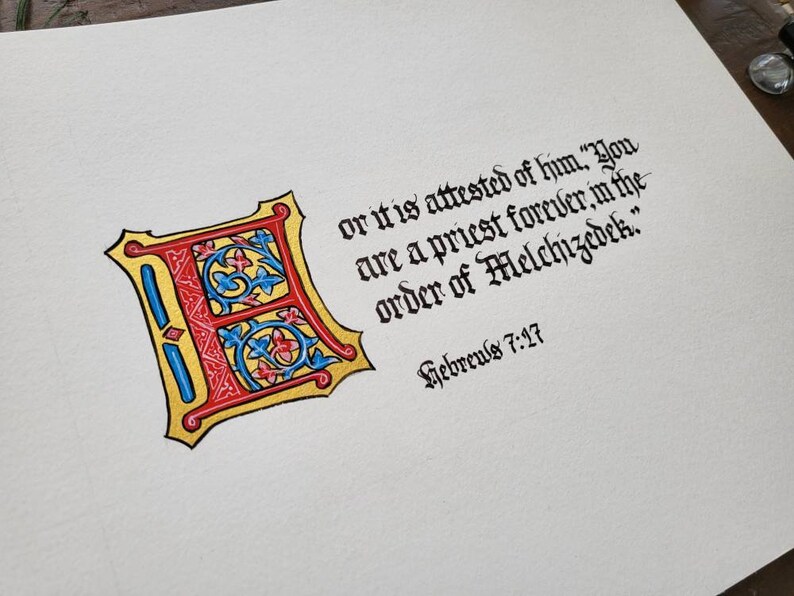 For it is attested of him, “You
are a priest forever, in the
order of Melchizedek.”
Hebrews 7:17